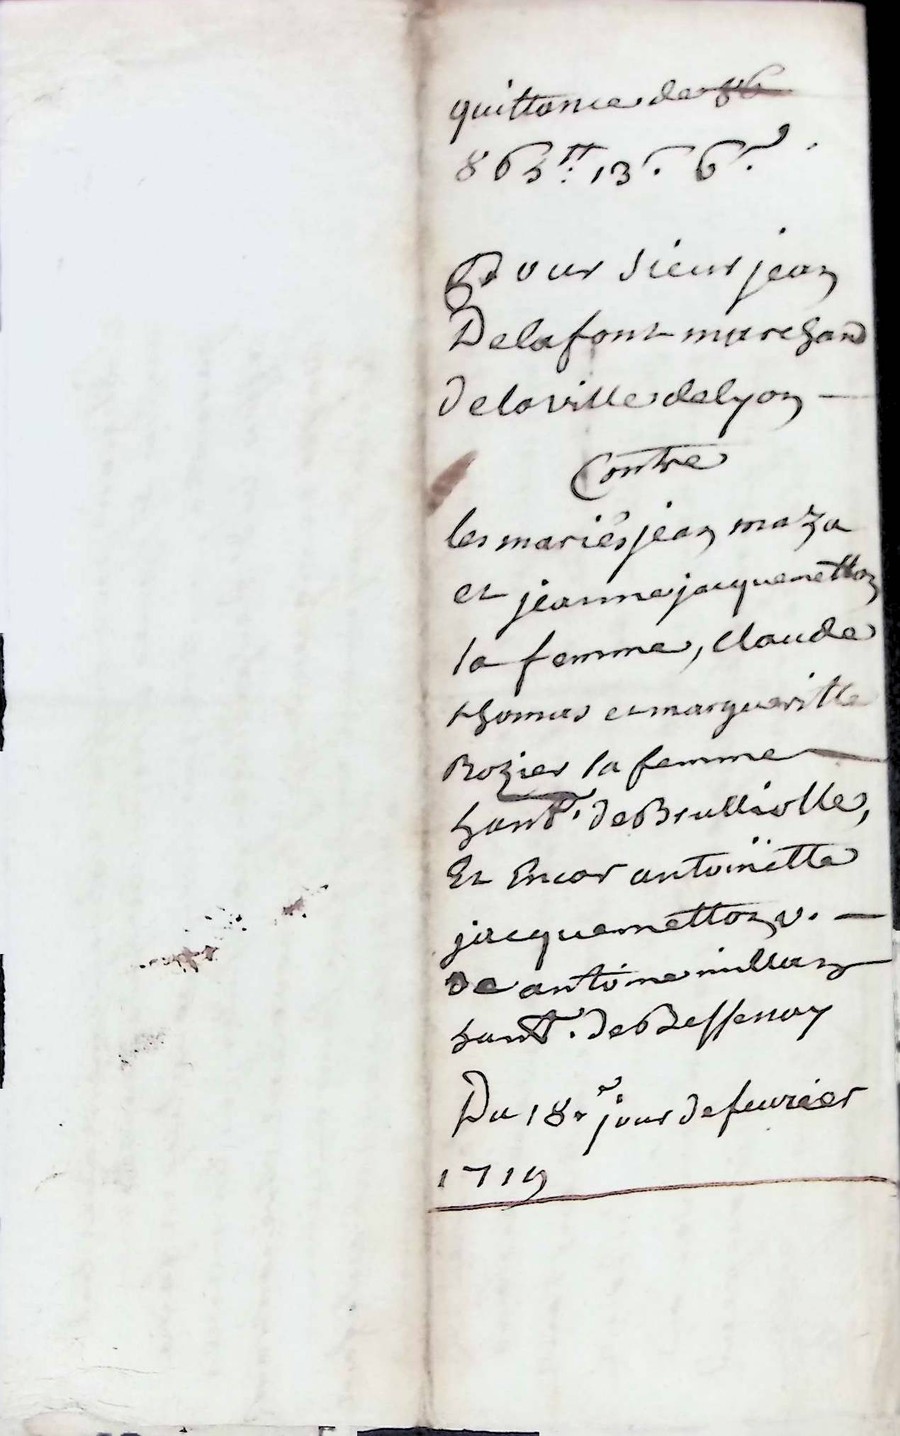 quittance de 86
865ᵗᵗ: 13ˢ. 6ᵈ.
Pour sieur jean
Delafont marchand
de la ville de lyon —
Contre
les mariés jean maza
et jeanne jacquemetton
sa femme, claude
thomas et margueritte
Rozier sa femme
hantˢ. de Brulliolle,
Et Encor antoinette
jacquemetton v. —
de antoine millan
hantˢ. de Bessenay
Du 18ᵉ jour de feuvrier
1719